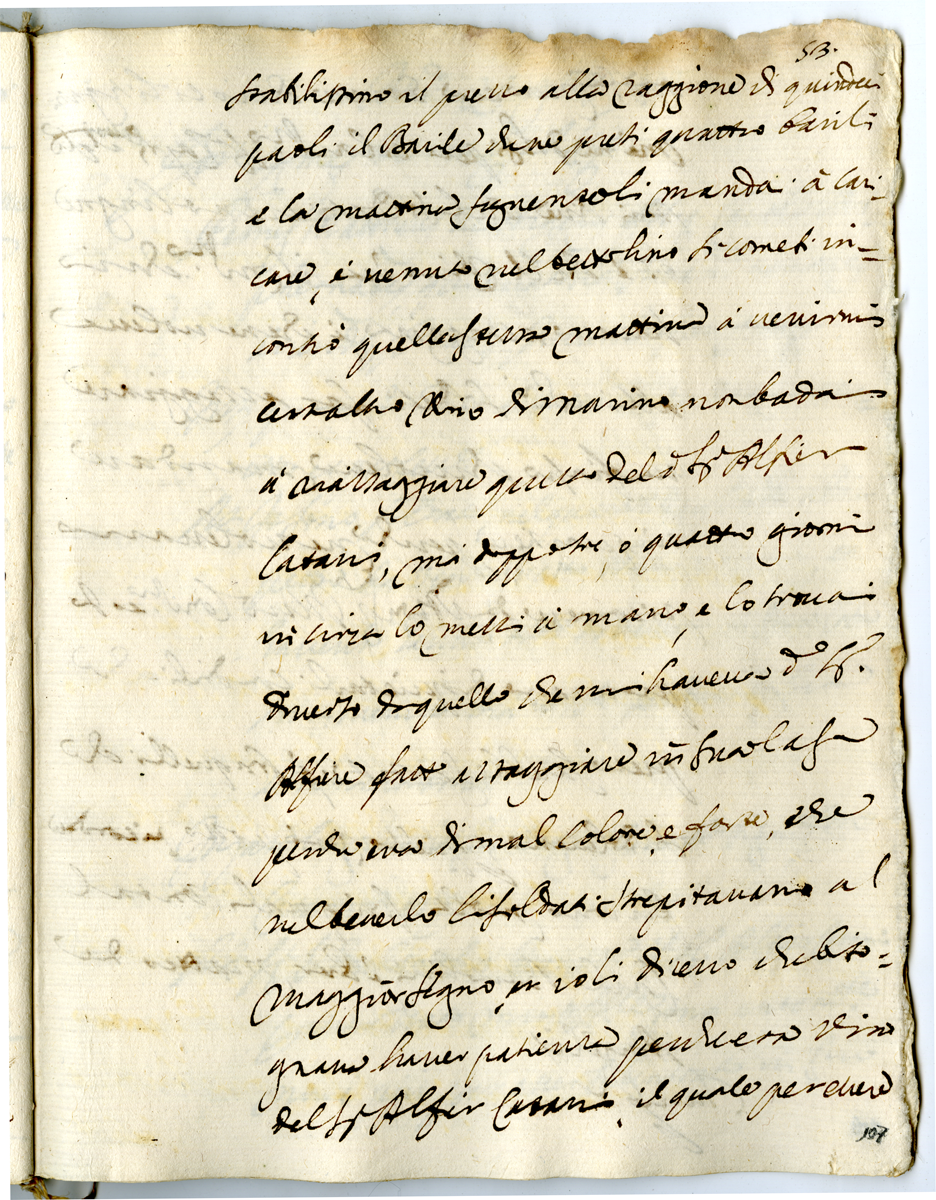 53.
stabilissimo il prezzo alla raggione di quindeci
paoli il Barile che ne presi quattro barili
e la mattina seguente li mandai à cari-
care, e venuto nel bettolino si come ti in-
contrò quella stessa mattina à venirmi
cert'altro Vino di Marino non badai
à riassaggiare questo del d.º Sr. Alfier
Catani, mà doppo tre, ò quattro giorni
in circa lo messi à mano, e lo trovai
diverso da quello che mi haveva d.º Sr.
Alfiere fatto assaggiare in sua Casa
perche era di mal colore, e forte, che
nel beverlo li soldati strepitavano al
maggior segno, et io li dicevo che biso-
gnava haver patienza perche era vino
del Sr. Alfier Catani, il quale perche è
107